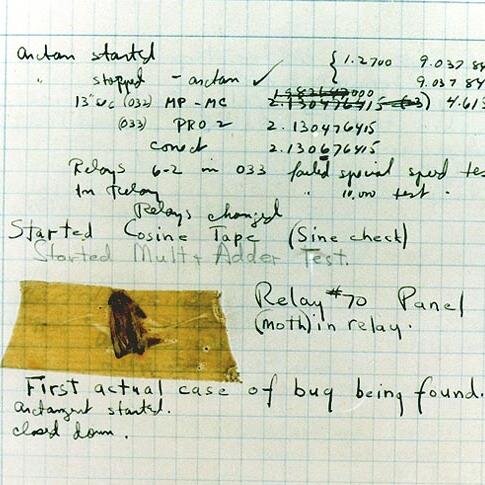 arctan started { 1.2700 9.037 84
" stopped - arctan ✓ 9.037 84
13" sec (032) MP - MC 2.130476415 4.613
(033) PRO 2 2.130476415
conect 2.130676415
Relays 6-2 in 033 failed special speed tes
In Relay " 10,000 test .
Relays changed
Started Cosine Tape (Sine check)
Started Mult + Adder Test.
Relay #70 Panel
(moth) in relay.
First actual case of bug being found.
arctangent started.
closed down .